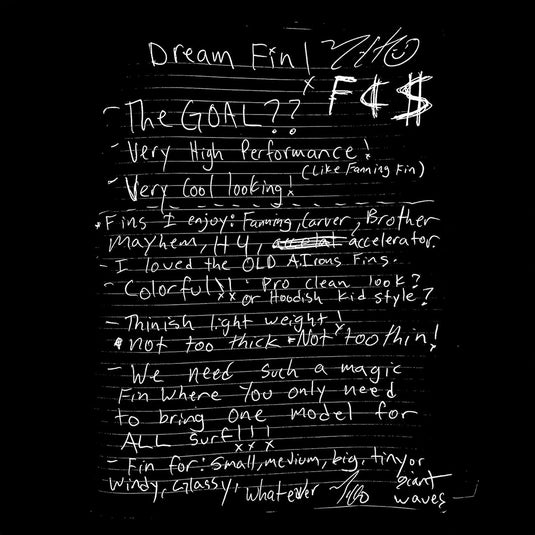 Dream Fin!
F¢$
- The GOAL??
- Very High Performance!
(Like Fanning Fin)
- Very Cool looking!
* Fins I enjoy: Fanning, Carver, Brother
Mayhem, H4, accelerator.
- I loved the OLD A.Irons Fins.
- Colorful!! : Pro clean look?
or Hoodish Kid style?
- Thinish light weight!
* not too thick * Not too thin!
- We need such a magic
Fin Where You only need
to bring one model for
ALL Surf!!!
- Fin for: Small, medium, big, tiny or
Windy, Glassy, whatever giant
waves